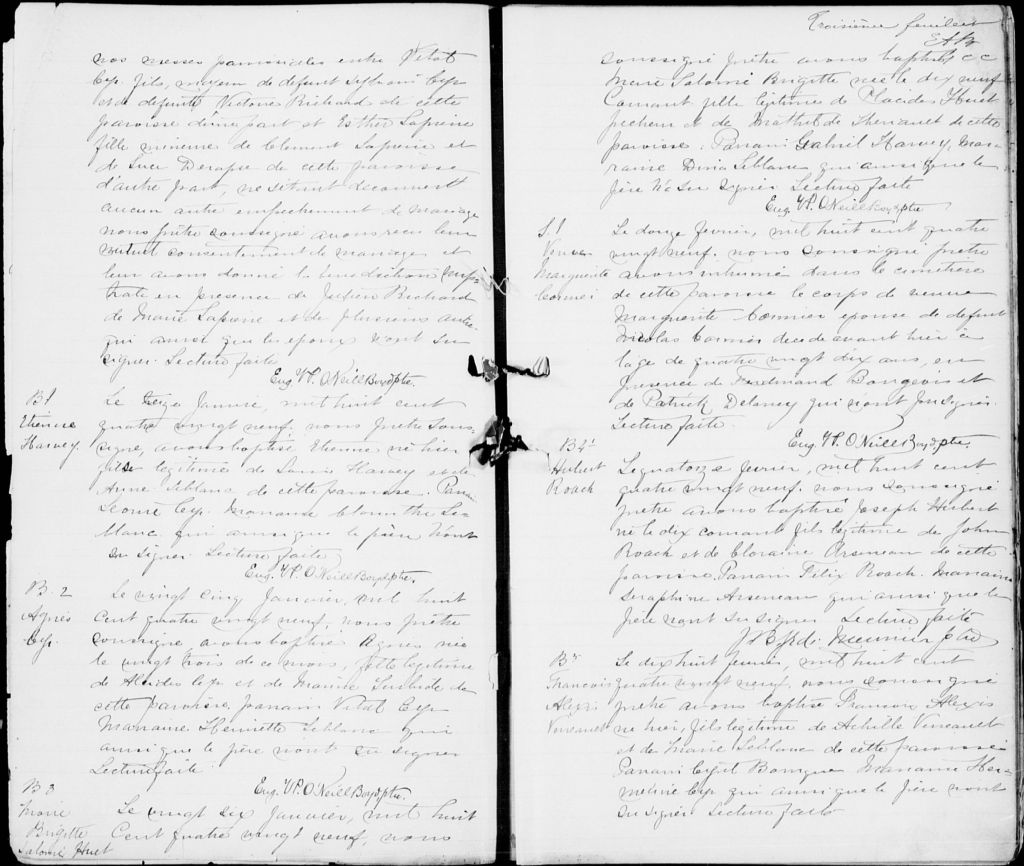 nos messes paroissiales entre Vital
Cyp fils, mineur de defunt Cyp
et de defunte Victoire Richard de cette
paroisse d'une part et Esther Lapierre
fille mineure de Clement Lapierre et
de Luce Derapse de cette paroisse
d'autre part, ne s'etant decouvert
aucun autre empechement de mariage
nous prêtre soussigné avons recu leur
mutuel consentement de mariage et
leur avons donné la benediction nup-
tiale en presence de Julien Richard
de Marie Lapierre et de plusieurs autres
qui ainsi que les epoux n'ont su
signer. Lecture faite
Eug. W. P. O'Neill Boyd ptre.
B 1
Etienne
Harvey.
Le seize Janvier, mil huit cent
quatre vingt neuf, nous prêtre sous-
signé, avons baptisé Etienne né hier
fils legitime de Louis Harvey et de
Anne Leblanc de cette paroisse. Parrain
Leome Cyp. Marraine Clomithe Le-
blanc qui ainsi que le père n'ont
su signer Lecture faite
Eug. W. P. O'Neill Boyd ptre.
B. 2
Agnès
Cyp.
Le vingt cinq Janvier, mil huit
cent quatre vingt neuf, nous prêtre
soussigné avons baptisé Agnès née
le vingt trois de ce mois, fille legitime
de Alcides Cyp et de Marie de
cette paroisse, parrain Vital Cyp
Marraine Henriette Leblanc qui
ainsi que le père n'ont su signer
Lecture faite
Eug. W. P. O'Neill Boyd ptre.
B 3
Marie
Brigitte
Salomé Huet
Le vingt six Janvier, mil huit
Cent quatre vingt neuf, nous
Troisième feuillet
E A B
soussigné prêtre avons baptisé
Marie Salomé Brigitte née le dix neuf
Courant fille légitime de Placides Huet
pecheur et de Mathilde Theriault de cette
paroisse. Parrain Gabriel Harvey, Mar-
raine Dina Leblanc qui ainsi que le
père n'a su signer Lecture faite
Eug. W. P. O'Neill Boyd ptre
S. 1
Veuve
Marguerite
Cormier
Le douze fevrier, mil huit cent quatre
vingt neuf. nous soussigné prêtre
avons inhumé dans le cimetière
de cette paroisse le corps de veuve
Marguerite Cormier epouse de defunt
Nicolas Cormier decedé avant hier à
l'age de quatre vingt dix ans, en
presence de Ferdinand Bourgeois et
de Patrick Delaney qui n'ont pu signer.
Lecture faite.
Eug. W. P. O'Neill Boyd ptre
B 4
Hubert
Roach
Le quatorze fevrier, mil huit cent
quatre vingt neuf. nous soussigné
prêtre avons baptisé Joseph Hubert
né le dix courant fils legitime de John
Roach et de Cloraine Arseneau de cette
paroisse, Parrain Felix Roach. Marraine
Seraphine Arseneau qui ainsi que le
père n'ont su signer Lecture faite
B 5
Francois
Alexis
Vineault
Le dix huit fevrier, mil huit cent
quatre vingt neuf. nous soussigné
prêtre avons baptisé Francois Alexis
né hier, fils legitime de Achille Vineault
et de Marie Leblanc de cette paroisse
Parrain Cyril Bourque Marraine Her-
meline Cyp qui ainsi que le père n'ont
su signer Lecture faite